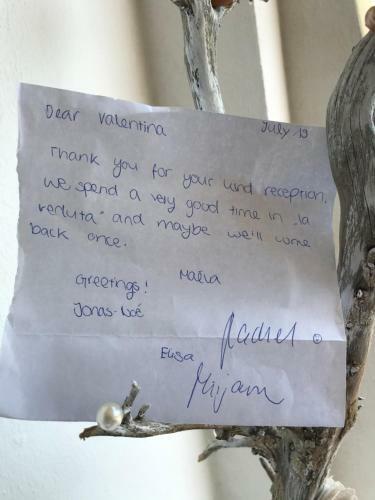 Dear Valentina July 19
Thank you for your kind reception.
We spend a very good time in „la
veduta" and maybe we'll come
back once.
Greetings! Maëla
Jonas-Noé
Rachel ☺
Elisa
Mirjam